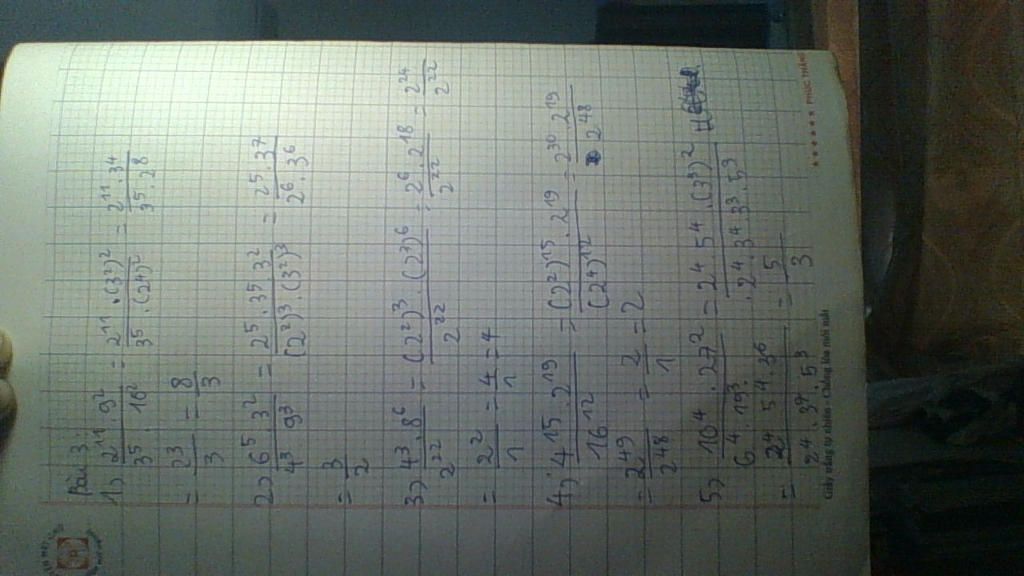 Bài 3:
1) 2^11 . 9^2 / 3^5 . 16^2 = 2^11 . (3^2)^2 / 3^5 . (2^4)^2 = 2^11 . 3^4 / 3^5 . 2^8
= 2^3 / 3 = 8 / 3
2) 6^5 . 3^2 / 4^3 9^3 = 2^5 . 3^5 . 3^2 / (2^2)^3 . (3^2)^3 = 2^5 . 3^7 / 2^6 . 3^6
= 3 / 2
3) 4^3 . 8^6 / 2^22 = (2^2)^3 . (2^3)^6 / 2^22 = 2^6 . 2^18 / 2^22 = 2^24 / 2^22
= 2^2 / 1 = 4 / 1 = 4
4) 4^15 . 2^19 / 16^12 = (2^2)^15 . 2^19 / (2^4)^12 = 2^30 . 2^19 / 2^48
= 2^49 / 2^48 = 2 / 1 = 2
5) 10^4 . 27^2 / 6^4 . 15^3 = 2^4 5^4 . (3^3)^2 / 2^4 3^4 3^3 . 5^3
= 2^4 5^4 . 3^6 / 2^4 . 3^7 . 5^3 = 5 / 3
Giấy trắng tự nhiên - Chống lóa mỏi mắt
PHÚC THÀNH